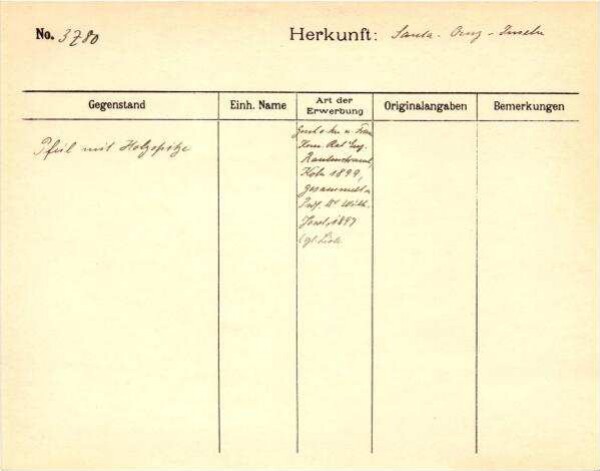 No. 3780 Herkunft: Santa-Cruz-Inseln
Gegenstand Einh. Name Art der Erwerbung Originalangaben Bemerkungen
Pfeil mit Holzspitze
Geschenk v. Frau
Kom. Rat Eug.
Rautenstrauch,
Köln 1899,
gesammelt v.
Prof. Dr Wilh.
Joest, 1897